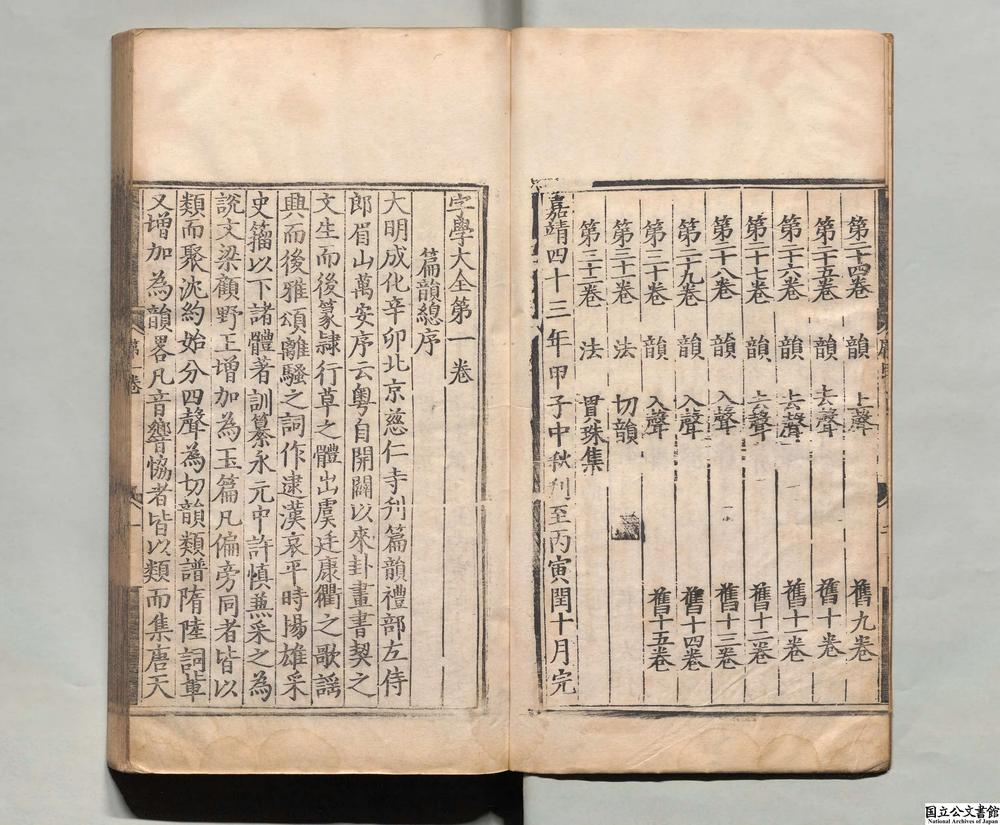 第二十四卷 韻 上聲 舊九卷
第二十五卷 韻 去聲 舊十卷
第二十六卷 韻 去聲 舊十一卷
第二十七卷 韻 去聲 舊十二卷
第二十八卷 韻 入聲 舊十三卷
第二十九卷 韻 入聲 舊十四卷
第三十卷 韻 入聲 舊十五卷
第三十一卷 法 切韻
第三十二卷 法 貫珠集
嘉靖四十三年甲子中秋刋至丙寅閏十月完
字學大全第一卷
篇韻總序
大明成化辛卯北京慈仁寺刋篇韻禮部左侍
郎眉山萬安序云粤自開闢以來卦畫書契之
文生而後篆隸行草之體出虞廷康衢之歌謡
興而後雅頌離騷之詞作逮漢哀平時揚雄采
史籀以下諸體著訓纂永元中許慎蒹采之為
說文梁顧野王增加為玉篇凡偏旁同者皆以
類而聚沈約始分四聲為切韻類譜隋陸詞軰
又增加為韻畧凡音響恊者皆以類而集唐天
第一卷
国立公文書館
National Archives of Japan